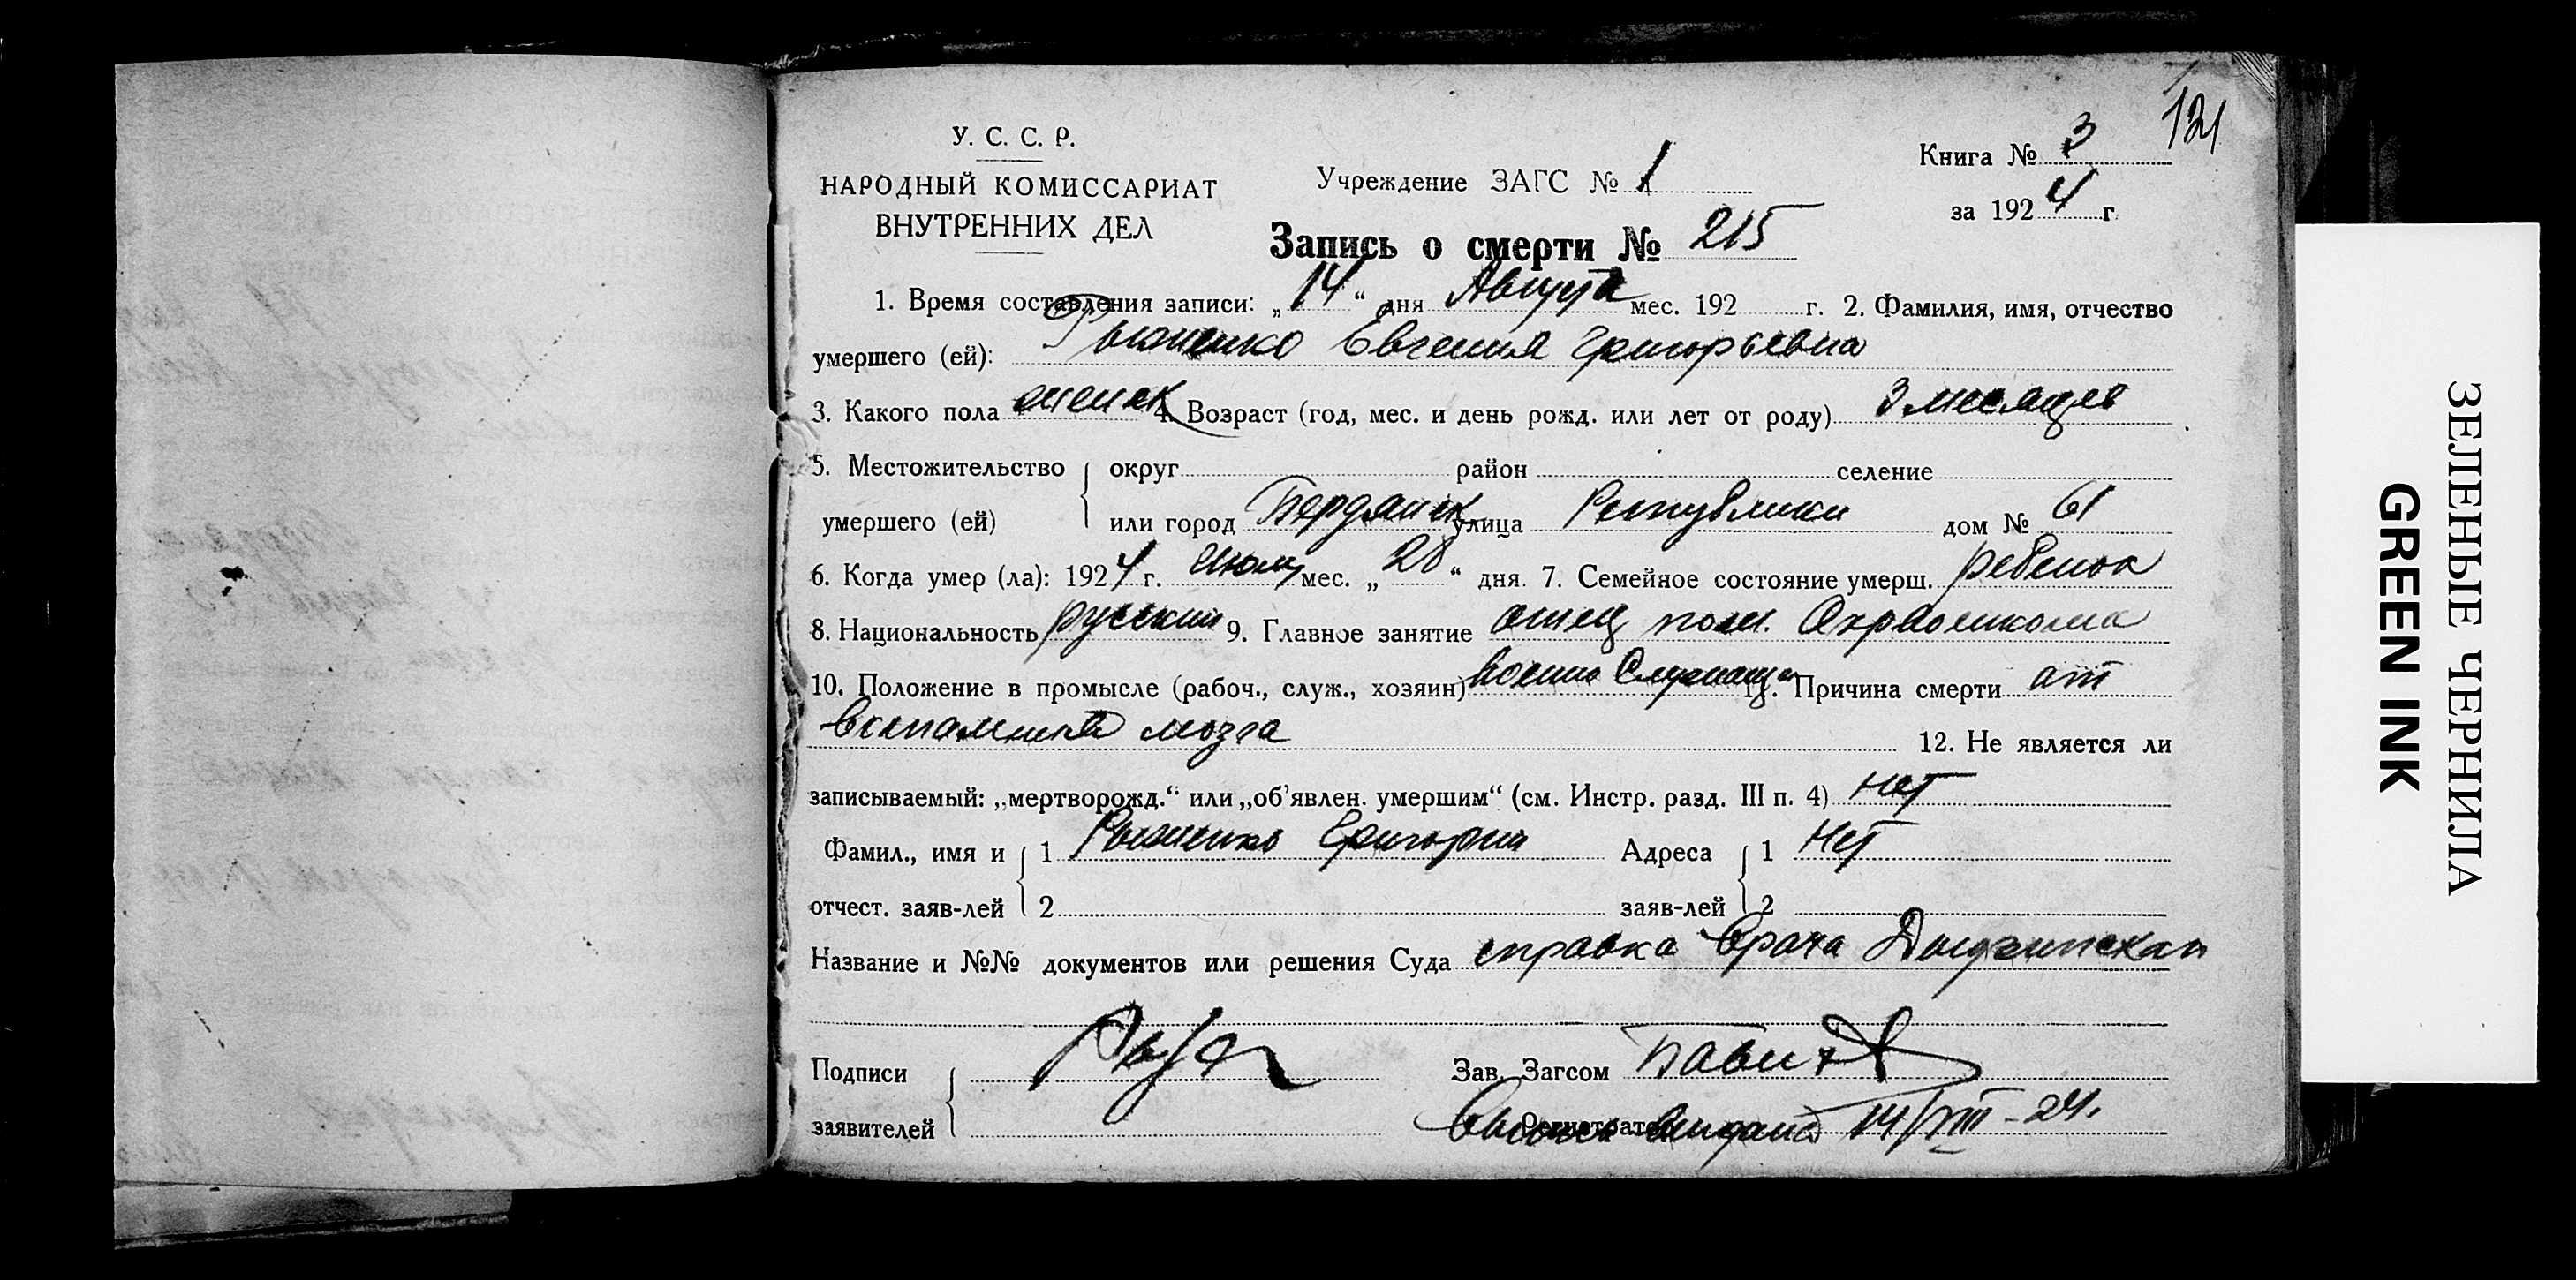 121
У. С. С. Р.
НАРОДНЫЙ КОМИССАРИАТ
ВНУТРЕННИХ ДЕЛ
Учреждение ЗАГС № 1
Книга № 3
за 1924 г.
Запись о смерти № 215
1. Время составления записи: „14“ дня Августа мес. 192 г. 2. Фамилия, имя, отчество
умершего (ей): Евгения Григорьевна
3. Какого пола женск 4. Возраст (год, мес. и день рожд. или лет от роду) 3 месяцев
5. Местожительство округ район селение
умершего (ей) или город Бердянск улица Республики дом № 61
6. Когда умер (ла): 1924 г. мес. „28“ дня. 7. Семейное состояние умерш. ребенок
8. Национальность русский 9. Главное занятие отец
10. Положение в промысле (рабоч., служ., хозяин) военно Служащий 11. Причина смерти от
воспаления мозга 12. Не является ли
записываемый: „мертворожд.“ или „об'явлен. умершим“ (см. Инстр. разд. III п. 4) нет
Фамил., имя и 1 Григорий Адреса 1 Нет
отчест. заяв-лей 2 заяв-лей 2
Название и №№ документов или решения Суда справка врача
Подписи Зав. Загсом
заявителей Регистратор 14/VIII-24.
ЗЕЛЕНЫЕ ЧЕРНИЛА
GREEN INK